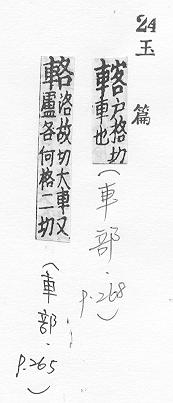 24
玉篇
户挌切
車也
(車部.p.268)
輅洛故切大車又
盧各何格二切
(車部.p.265)